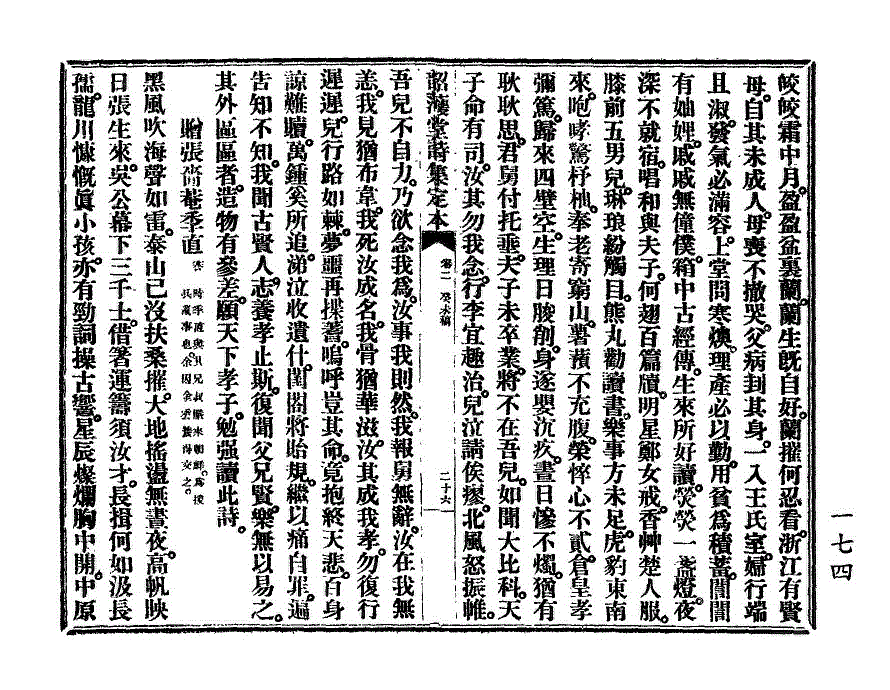 皎皎霜中月。盈盈盆裏蘭。蘭生旣自好。蘭摧何忍看。浙江有賢
母。自其未成人。母喪不撤哭。父病刲其身。一入王氏室。婦行端
且淑。發氣必滿容。上堂問寒燠。理產必以勤。用貧爲積蓄。闇闇
有妯娌。戚戚無僮僕。箱中古經傳。生來所好讀。熒熒一盞燈。夜
深不就宿。唱和與夫子。何翅百篇牘。明星鄭女戒。香艸楚人服。
膝前五男兒。琳琅紛觸目。熊丸勸讀書。樂事方未足。虎豹東南
來。咆哮驚杼柚。奉老寄窮山。薯蕷不充腹。榮悴心不貳。倉皇孝
彌篤。歸來四壁空。生理日脧削。身逐嬰沉疚。晝日慘不燭。猶有
耿耿思。君舅付托重。夫子未卒業。將不在吾兒。如聞大比科。天
子命有司。汝其勿我念。行李宜趣治。兒泣請俟瘳。北風怒振帷。
韶濩堂詩集定本 卷二 癸未稿 二十六
吾兒不自力。乃欲念我爲。汝事我則然。我報舅無辭。汝在我無
恙。我見猶布韋。我死汝成名。我骨猶華滋。汝其成我孝。勿復行
遲遲。兒行路如棘。夢噩再揲蓍。嗚呼豈其命。竟抱終天悲。百身
諒難贖。萬鍾奚所追。涕泣收遺什。閨閣將貽規。繼以痛自罪。遍
告知不知。我聞古賢人。志養孝止斯。復聞父兄賢。樂無以易之。
其外區區者。造物有參差。願天下孝子。勉强讀此詩。
贈張嗇菴季直 詧 時季直與其兄叔儼來朝鮮。爲援
兵畫事也。余因金雲養得交之。
黑風吹海聲如雷。泰山已沒扶桑摧。大地搖盪無晝夜。高帆映
日張生來。吳公幕下三千士。借箸運籌須汝才。長揖何如汲長
孺。龍川慷慨眞小孩。亦有勁詞操古響。星辰燦爛胸中開。中原
一七四